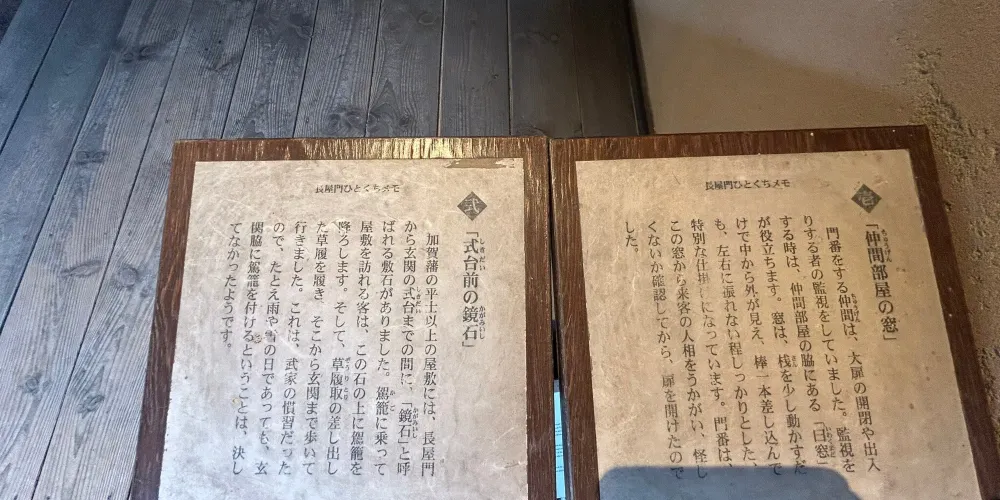 長屋門ひとくちメモ
壱
「仲間部屋の窓」
門番をする仲間は、大扉の開閉や出入
りする者の監視をしていました。監視を
する時は、仲間部屋の脇にある「臼窓」
が役立ちます。窓は、桟を少し動かすだ
けで中から外が見え、棒一本差し込んで
も、左右に振れない程しっかりとした、
特別な仕掛けになっています。門番は、
この窓から来客の人相をうかがい、怪し
くないか確認してから、扉を開けたので
した。
長屋門ひとくちメモ
弐
「式台前の鏡石」
加賀藩の平士以上の屋敷には、長屋門
から玄関の式台までの間に、「鏡石」と呼
ばれる敷石がありました。駕籠に乗って
屋敷を訪れる客は、この石の上に駕籠を
降ろします。そして、草履取の差し出し
た草履を履き、そこから玄関まで歩いて
行きました。これは、武家の慣習だった
ので、たとえ雨や雪の日であっても、玄
関脇に駕籠を付けるということは、決し
てなかったようです。